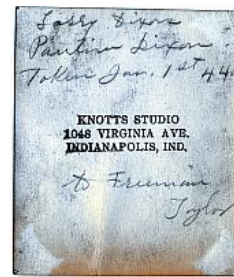 Larry Dixon
Pauline Dixon
Taken Jan. 1st 44
KNOTTS STUDIO
1048 VIRGINIA AVE.
INDIANAPOLIS, IND.
to Freeman
Taylor